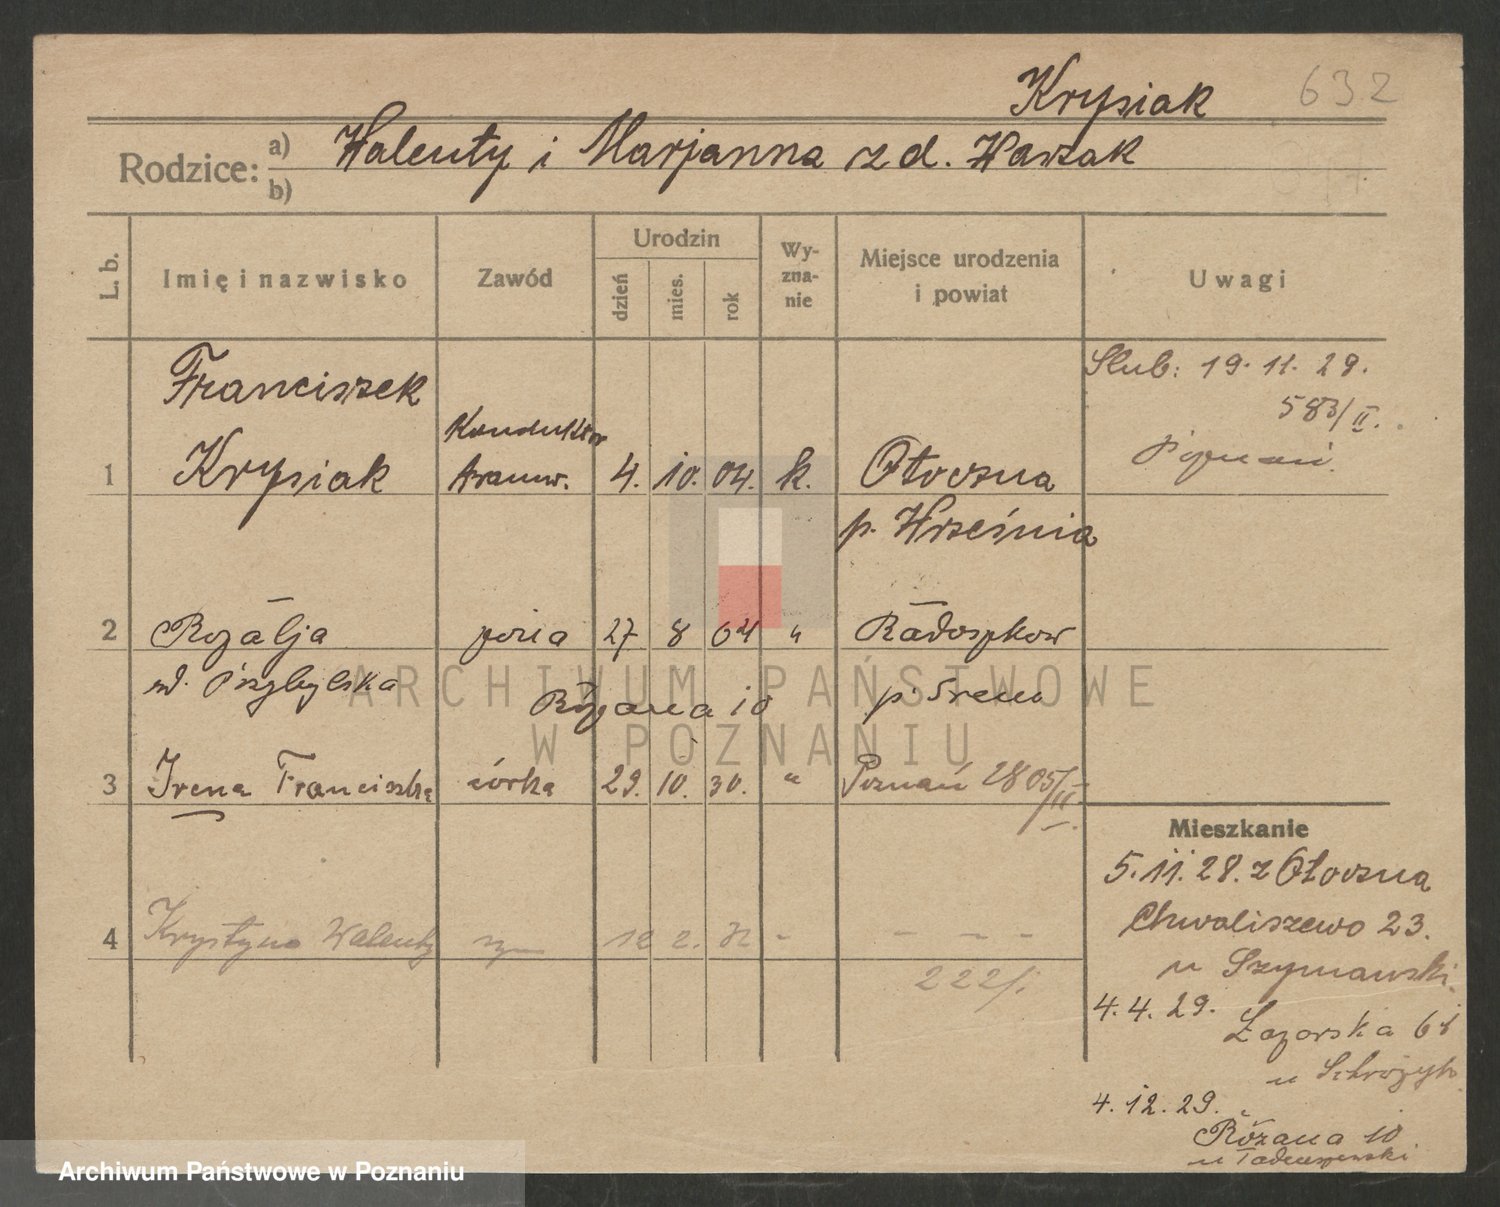 Krysiak 632
Rodzice: a) Walenty i Marjanna z d. Wawzak
b)
L. b. Imię i nazwisko Zawód Urodzin dzień mies. rok Wyznanie Miejsce urodzenia i powiat Uwagi
Franciszek Ślub: 19.11.29.
583/II.
Konduktor
1 Krysiak tramw. 4. 10. 04. k. Otoczna Poznań.
p. Września
2 Rozalja żona 27 8 04 " Radoszkow
Przybylska p. Srem
Różana 10
3 Irena Franciszka córka 29. 10. 30. " Poznań 2805/II
Mieszkanie
5.11.28. z Otoczna
Chwaliszewo 23.
4 Krystyna Walenty syn 12 2. 32 - - - -
222/.
u Szymawski
4.4.29. Łazarska
4.12.29. Różana 10
u Tadeuszewski
ARCHIWUM PAŃSTWOWE
W POZNANIU
Archiwum Państwowe w Poznaniu